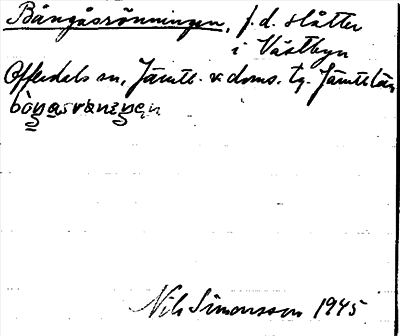 Bångåsrönningen, f.d. slåtter
i Västbyn
Offerdals sn, Jämtl. v. doms. tg. Jämtl. län
Nils Simonsson 1945